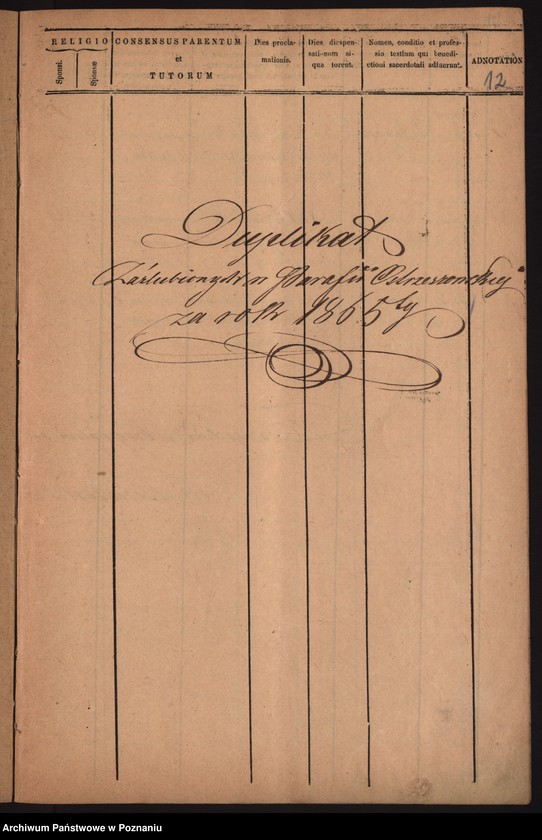 RELIGIO
Sponsi.
Sponsæ
CONSENSUS PARENTUM
et
TUTORUM
Dies procla-
mationis.
Dies dispen-
sati-num si-
qua torent.
Nomen, conditio et profes-
sio testium qui benedi-
ctioni sacerdotali adfuerunt.
ADNOTATION
12
Duplikat
Zaślubionych w Parafii Ostrzeszowskiej
za rok 1865ty
Archiwum Państwowe w Poznaniu